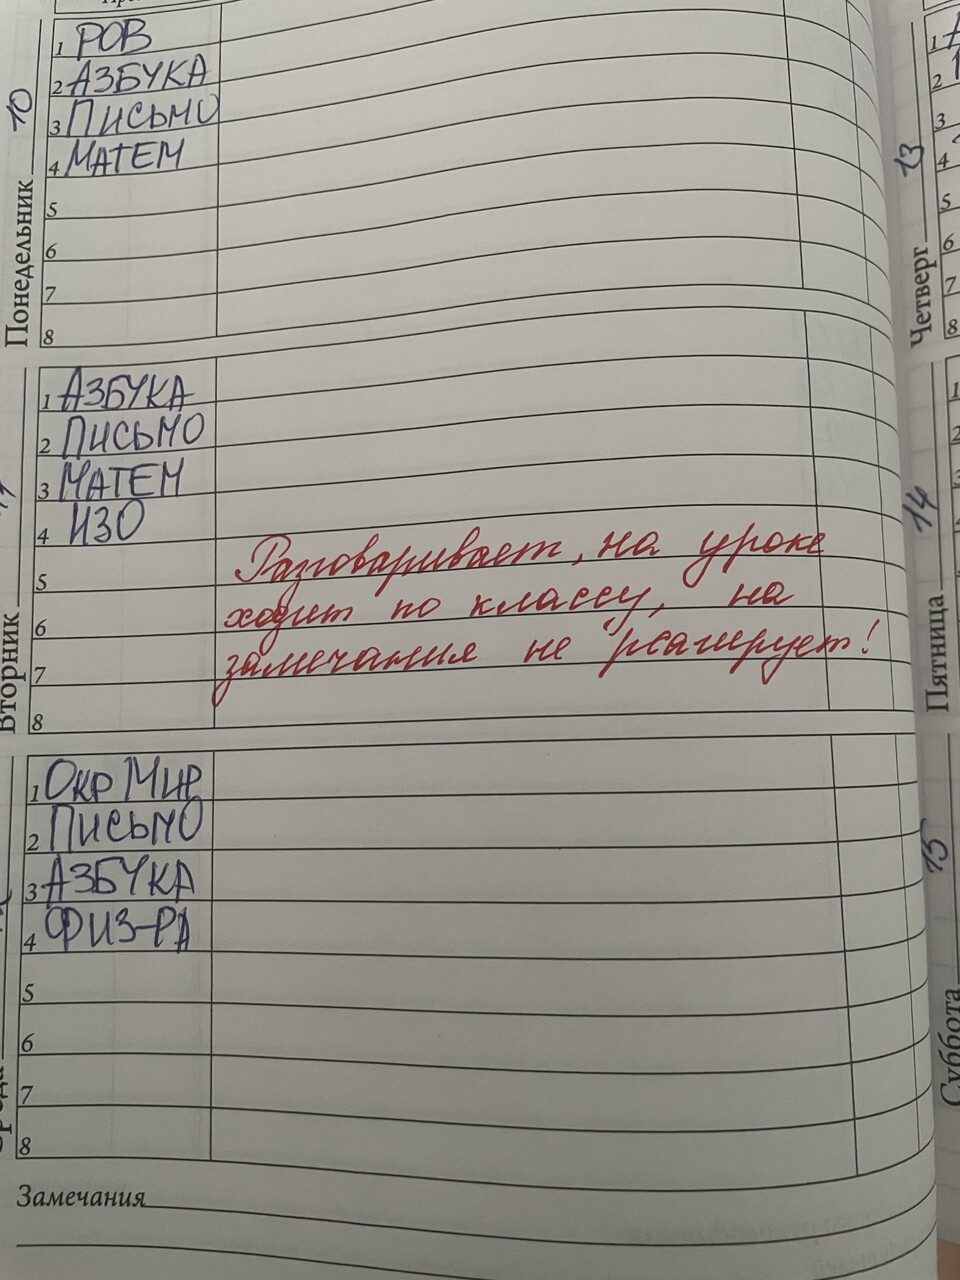 Понедельник 10
1 РОВ
2 АЗБУКА
3 ПИСЬМО
4 МАТЕМ
5
6
7
8
Вторник
1 АЗБУКА
2 ПИСЬМО
3 МАТЕМ
4 ИЗО
5
6
7
8
Разговаривает, на уроке
ходит по классу, на
замечания не реагирует!
1 ОКР МИР
2 ПИСЬМО
3 АЗБУКА
4 ФИЗ-РА
5
6
7
8
Замечания
Четверг 13
1
2
3
4
5
6
7
8
Пятница 14
1
2
Суббота 15